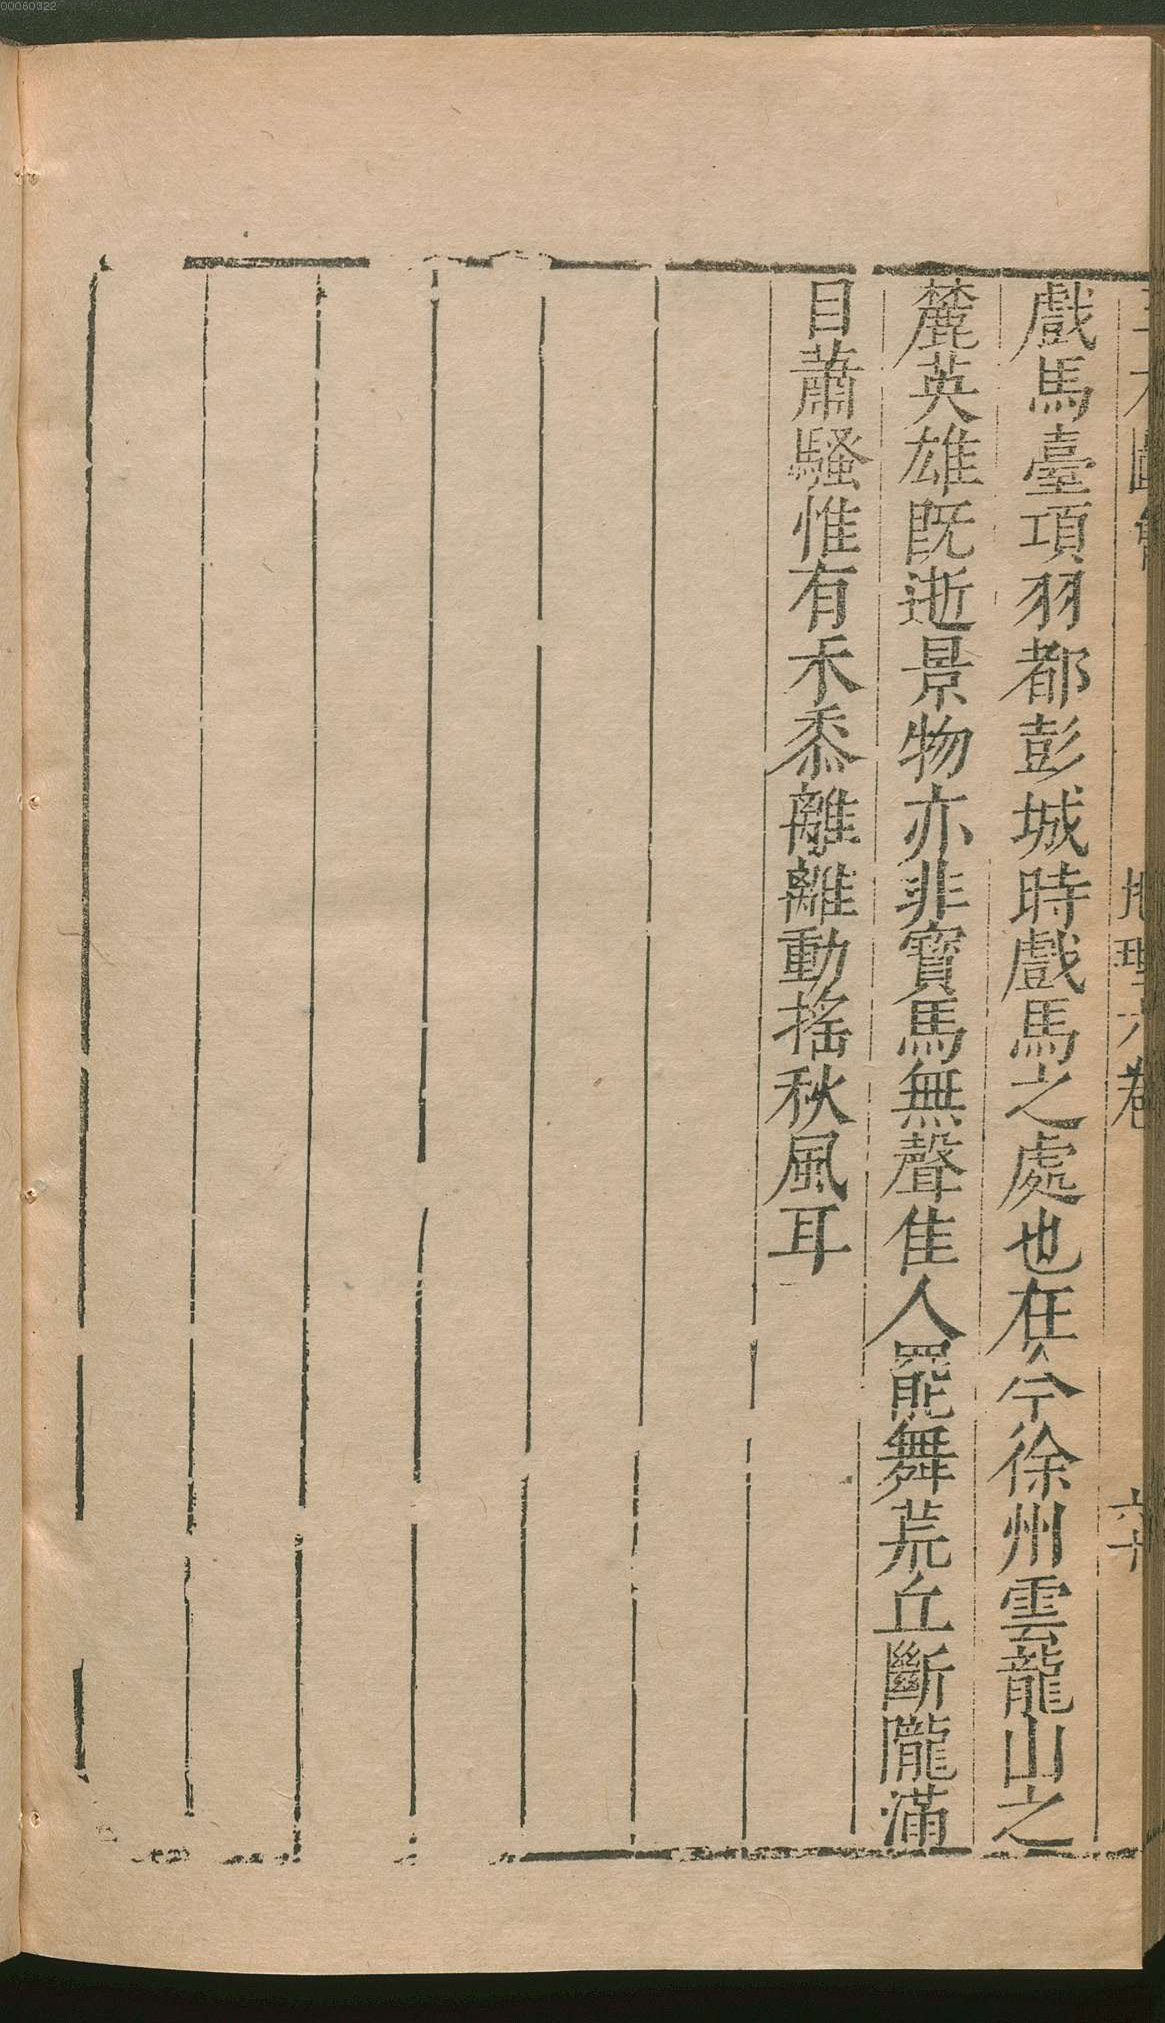 戲馬臺項羽都彭城時戲馬之處也在今徐州雲龍山之
麓英雄既逝景物亦非寳馬無聲佳人罷舞荒丘斷隴滿
目蕭騷惟有禾黍離離動搖秋風耳
地理六卷
六十
00060322